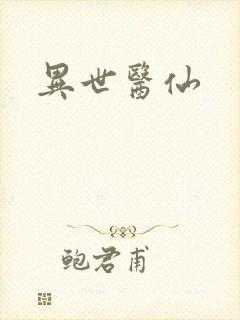 異世醫仙
鲍君甫